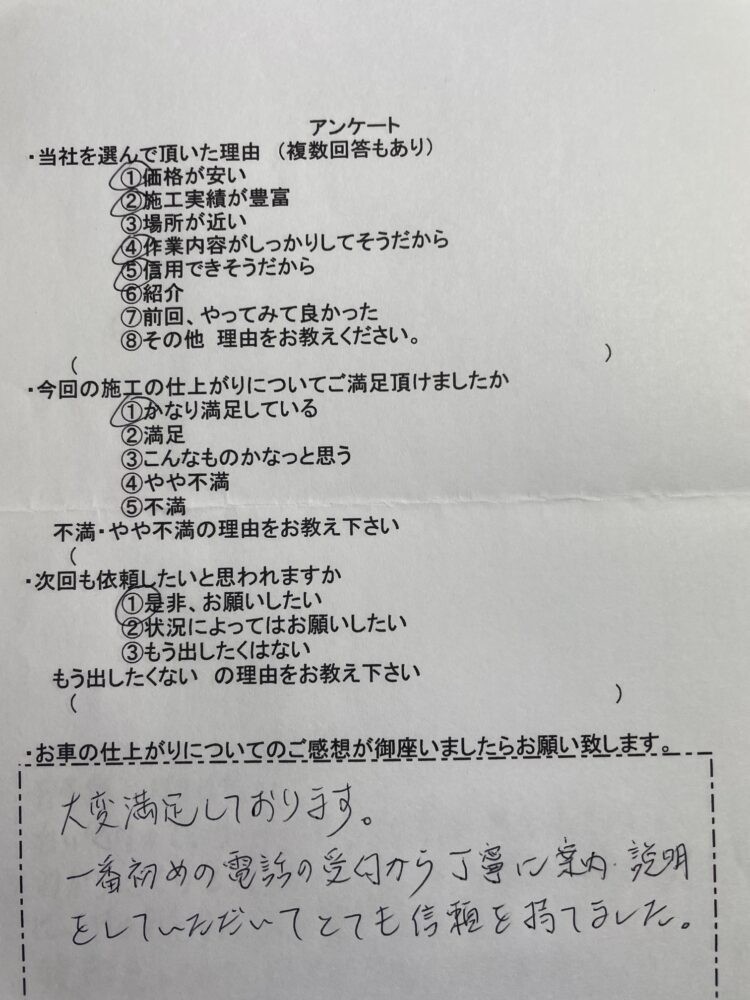 アンケート
・当社を選んで頂いた理由　（複数回答もあり）
①価格が安い
②施工実績が豊富
③場所が近い
④作業内容がしっかりしてそうだから
⑤信用できそうだから
⑥紹介
⑦前回、やってみて良かった
⑧その他　理由をお教えください。
（　　　　　　　　　　　　　　　　　　　　）
・今回の施工の仕上がりについてご満足頂けましたか
①かなり満足している
②満足
③こんなものかなっと思う
④やや不満
⑤不満
不満・やや不満の理由をお教え下さい
（
・次回も依頼したいと思われますか
①是非、お願いしたい
②状況によってはお願いしたい
③もう出したくはない
もう出したくない　の理由をお教え下さい
（　　　　　　　　　　　　　　　　　　　　）
・お車の仕上がりについてのご感想が御座いましたらお願い致します。
大変満足しております。
一番初めの電話の受付から丁寧に案内・説明
をしていただいてとても信頼を持てました。